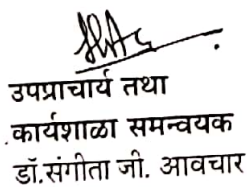 उपप्राचार्य तथा
कार्यशाळा समन्वयक
डॉ.संगीता जी. आवचार